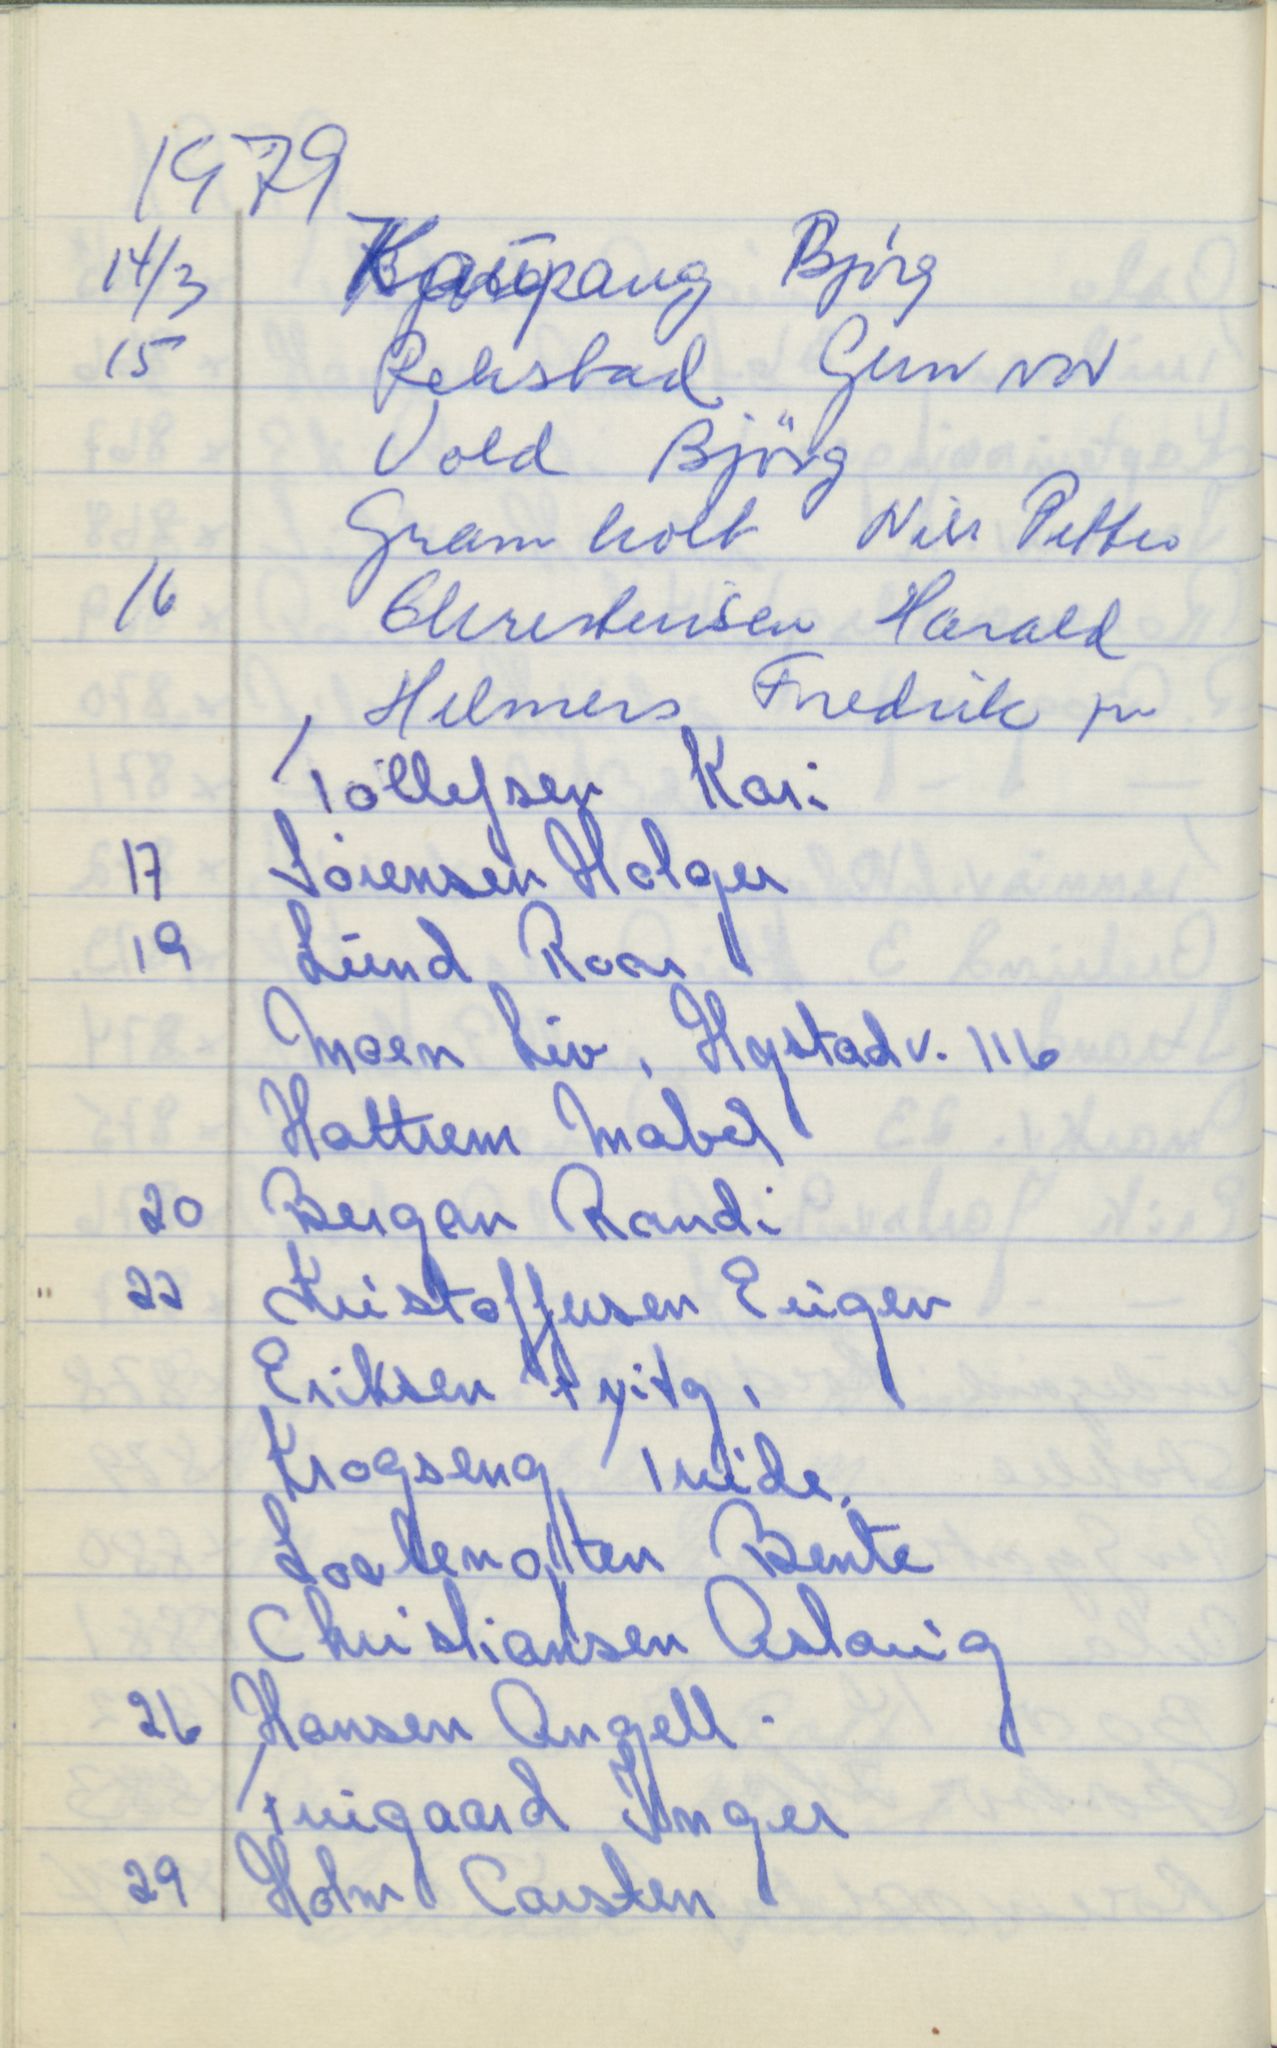 1979
14/3 Kaupang Bjørg
15 Reksbad Gunvor
Vold Björg
Gramholt Nils Petter
16 Christensen Harald
Helmers Fredrik jr
Tollefsen Kari
17 Sørensen Holger
19 Lund Roar
Moen Liv, Hystadv. 116
Hattrem Mabel
20 Bergan Randi
22 Kristoffersen Eugen
Eriksen
Krogseng Tride.
Bente
Christiansen Aslaug
26 Hansen Angell.
Furigaard Inger
29 Holm Carsten